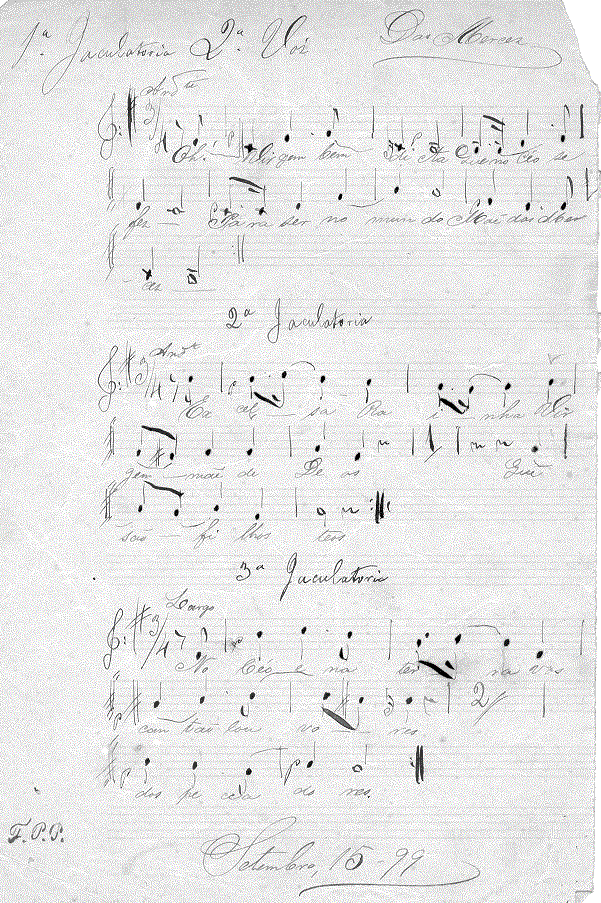 1.ª Jaculatoria 2.ª Voz Das Mercez
And.te
Oh! Virgem bem dita Que no Céo se
fez Pa ra ser no mun do Mãe das Mer
cês
2ª Jaculatoria
And.te
Ex cel sa Ra i nha Vir
gem mãe de De os Que
são fi lhos teos
3ª Jaculatoria
Largo
No Céo e na ter ra vos
can tão lou vo res
dos pe ca do res.
F.P.P.
Setembro, 15-99